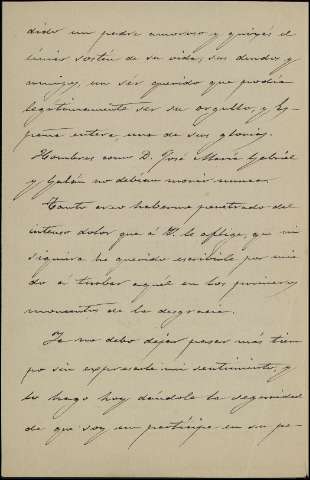 dido un padre amoroso y quizás el
único sostén de su vida; sus deudos y
amigos, un sér querido que podía
legítimamente ser su orgullo, y Es-
paña entera, una de sus glorias.
Hombres como D. José María Gabriel
y Galán no debían morir nunca.
Tanto creo haberme penetrado del
intenso dolor que á V. le aflige, que ni
siquiera he querido escribirle por mie-
do á turbar aquél en los primeros
momentos de la desgracia.
Ya no debo dejar pasar más tiem-
po sin expresarle mi sentimiento, y
lo hago hoy dándole la seguridad
de que soy un partícipe en su pe-